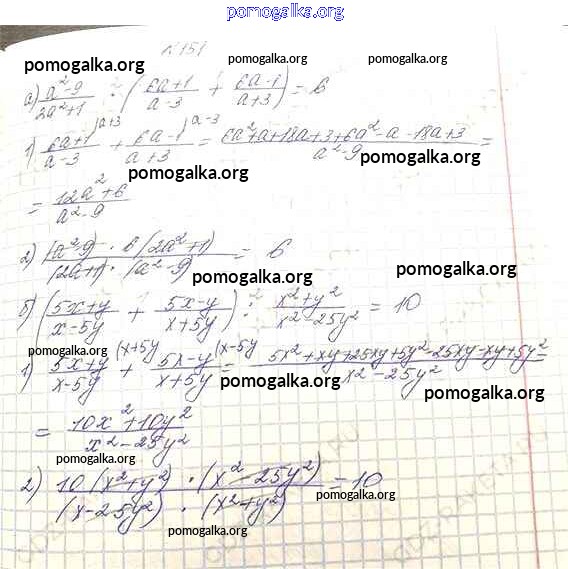 pomogalka.org
№151
pomogalka.org
pomogalka.org
а) a²-9/2a²+1 : (6a+1/a-3 + 6a-1/a+3) = 6
pomogalka.org
pomogalka.org
1) 6a+1/a-3 |a+3 + 6a-1/a+3 |a-3 = 6a²+a+18a+3+6a²-a-18a+3/a²-9 =
pomogalka.org
= 12a²+6/a²-9
2) (a²-9) · 6(2a²+1)/(2a+1) · (a²-9) = 6
pomogalka.org
pomogalka.org
б) (5x+y/x-5y + 5x-y/x+5y) : x²+y²/x²-25y² = 10
pomogalka.org
1) 5x+y/x-5y (x+5y + 5x-y/x+5y (x-5y = 5x²+xy+25xy+5y²-25xy-xy+5y²/x²-25y² =
pomogalka.org
pomogalka.org
= 10x²+10y²/x²-25y²
pomogalka.org
2) 10(x²+y²) · (x²-25y²)/(x-25y²) · (x²+y²) = 10
pomogalka.org
pomogalka.org